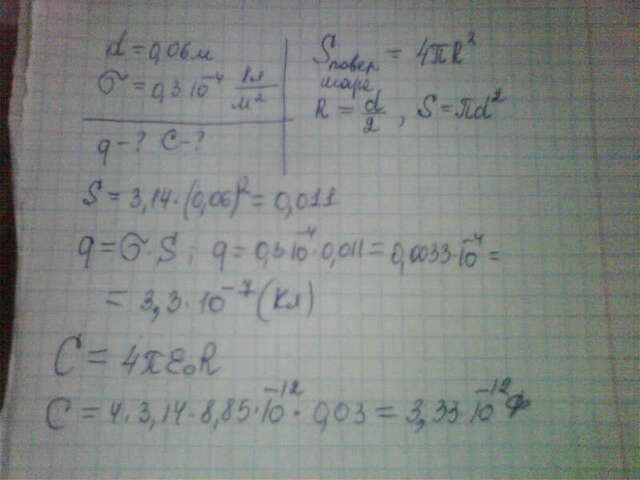 d = 0,06м
σ = 0,3·10⁻⁴ Кл/м²
q - ? C - ?
Sповер шара = 4πR²
R = d/2, S = πd²
S = 3,14·(0,06)² = 0,011
q = σ·S; q = 0,3·10⁻⁴·0,011 = 0,0033·10⁻⁴ =
= 3,3·10⁻⁷ (Кл)
C = 4πε₀R
C = 4·3,14·8,85·10⁻¹²·0,03 = 3,33·10⁻¹² Ф